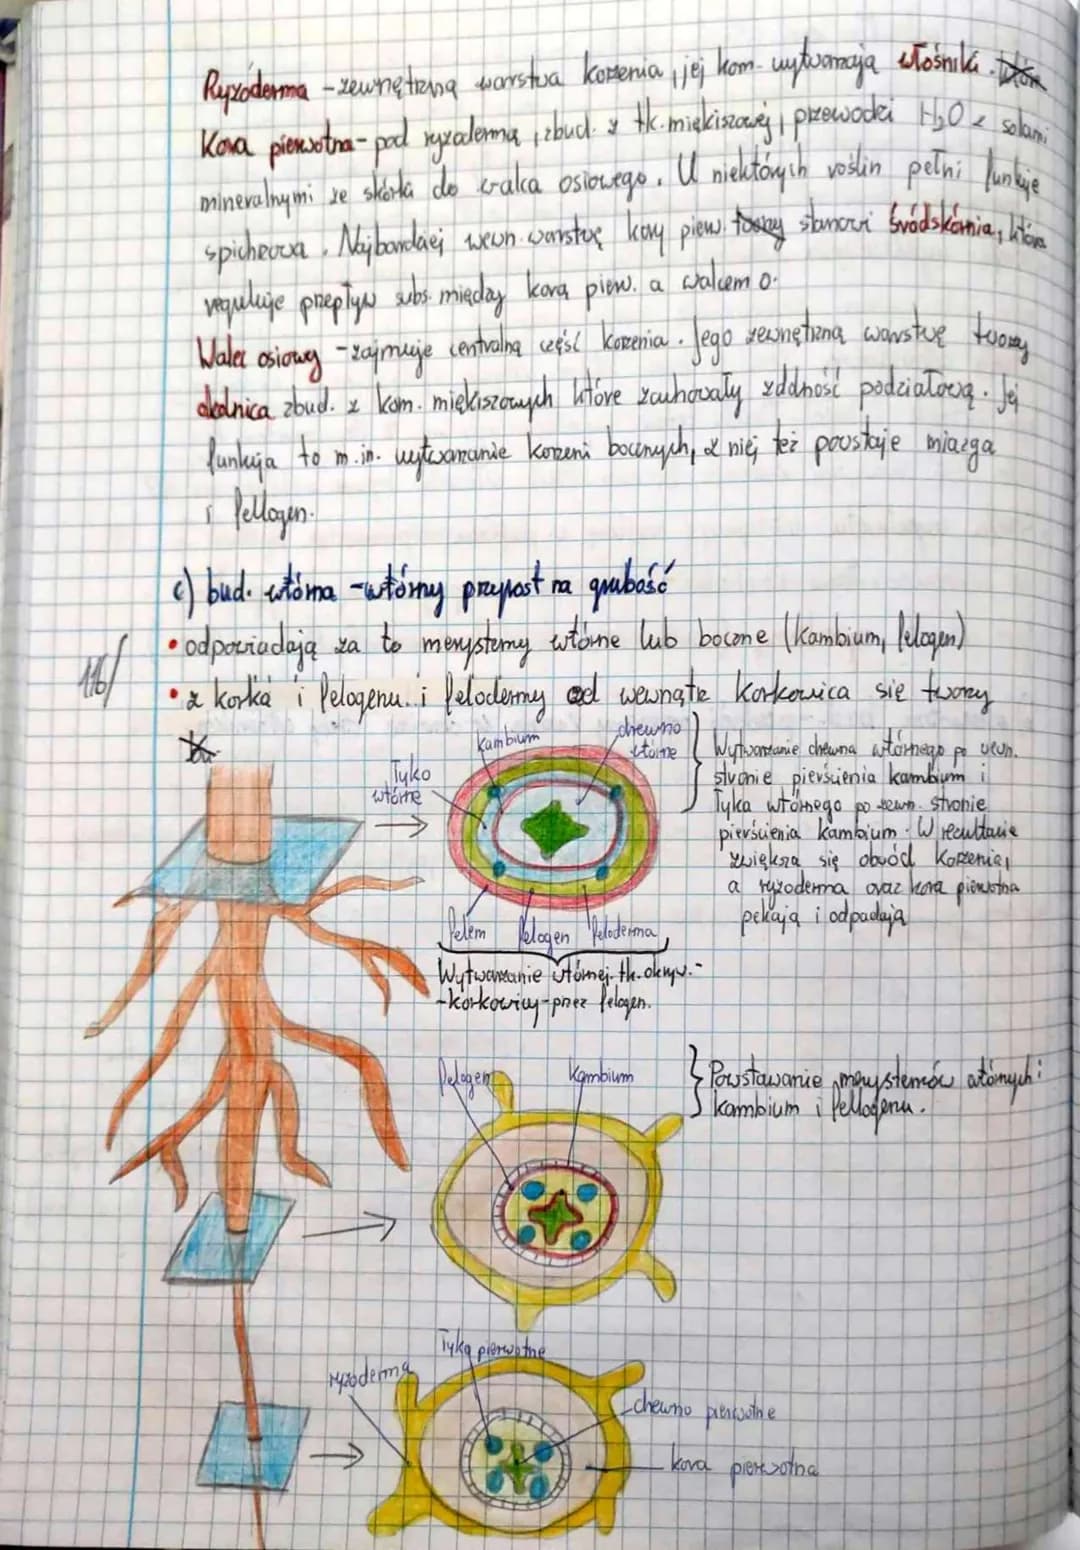 Ryzoderma - zewnętrzną warstwa korzenia, jej kom. wytwarzają włośniki.
Kora pierwotna - pod ryzodermą, zbud. z tk. miękiszowej, przewodzi H₂O z solami
mineralnymi ze skórki do walca osiowego. U niektórych roślin pełni funkcje
spichrzową. Najbardziej wewn. warstwę kory pierw. stanowi śródskórnia, która
reguluje przepływ subs. między korą pierw. a walcem o.
Walec osiowy - zajmuje centralną część korzenia. Jego zewnętrzną warstwę tworzy
okolnica zbud. z kom. miękiszowych które zachowały zdolność podziałową. Jej
funkcja to m.in. wytwarzanie korzeni bocznych, z niej też powstaje miazga
i fellogen.
c) bud. wtórna - wtórny przyrost na grubość
• odpowiadają za to merystemy wtórne lub boczne (kambium, felogen)
116/
• z korka i felogenu i felodermy od wewnątrz korkowica się tworzy
kambium
drewno wtórne
Łyko wtórne
Wytwarzanie drewna wtórnego po wewn.
stronie pierścienia kambium i
łyka wtórnego po zewn. stronie
pierścienia kambium. W rezultacie
zwiększa się obwód korzenia,
a ryzoderma oraz kora pierwotna
pękają i odpadają
felem felogen feloderma
Wytwarzanie wtórnej tk. okryw. -
- korkowicy - przez felogen.
felogen kambium
Powstawanie merystemów wtórnych:
kambium i fellogenu.
Łyko pierwotne
ryzoderma
drewno pierwotne
kora pierwotna